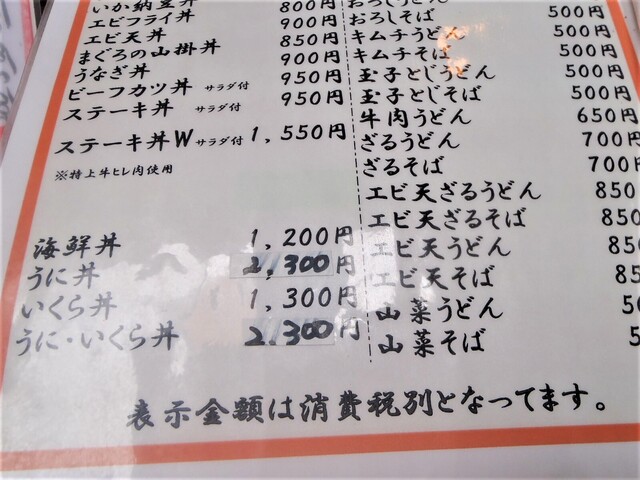 いか納豆丼
エビフライ丼 800円
エビ天丼 900円
まぐろの山掛丼 850円
うなぎ丼 900円
ビーフカツ丼 サラダ付 950円
ステーキ丼 サラダ付 950円
ステーキ丼W サラダ付 1,550円
※特上牛ヒレ肉使用
海鮮丼 1,200円
うに丼 2,300円
いくら丼 1,300円
うに・いくら丼 2,300円
おろしうどん
おろしそば 500円
キムチうどん 500円
キムチそば 500円
玉子とじうどん 500円
玉子とじそば 500円
牛肉うどん 650円
ざるうどん 700円
ざるそば 700円
エビ天ざるうどん 850
エビ天ざるそば 850
エビ天うどん 850
エビ天そば 850
山菜うどん 5
山菜そば 5
表示金額は消費税別となってます。